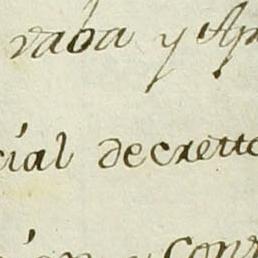 vaba y Ap
cial decrett
ion y Con